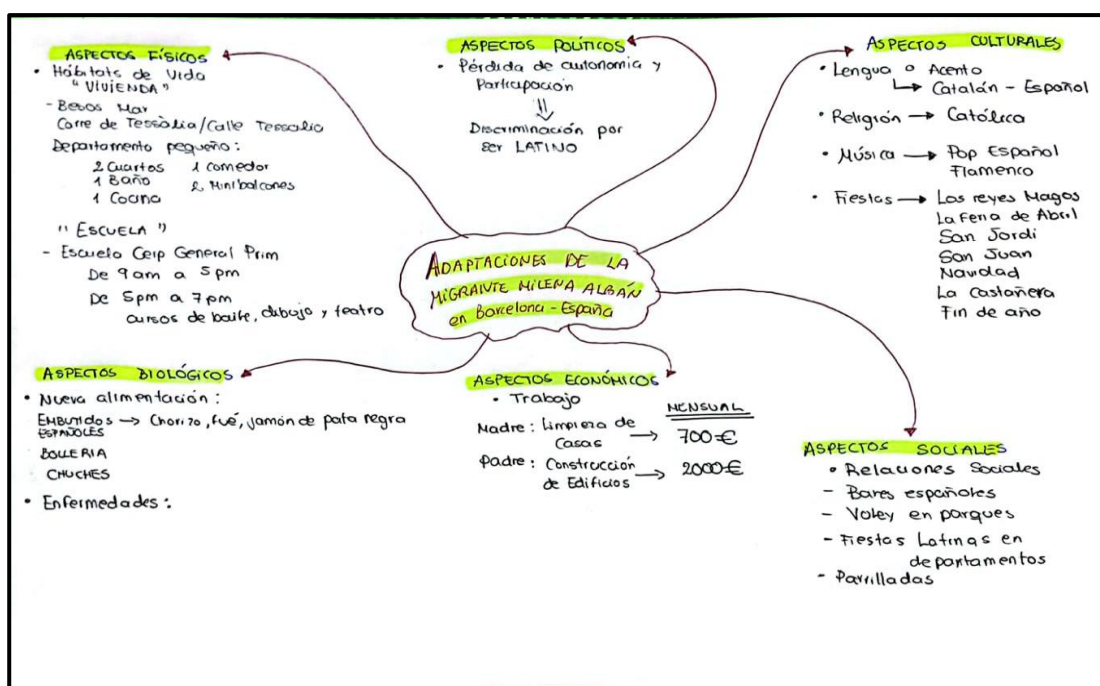 ASPECTOS FÍSICOS
• Hábitats de Vida
"VIVIENDA"
- Besos Mar
Carre de Tessàlia/Calle Tessalia
Departamento pequeño:
2 Cuartos 1 comedor
1 Baño 2 Minibalcones
1 Cocina
"ESCUELA"
- Escuela Ceip General Prim
De 9am a 5pm
De 5pm a 7pm
cursos de baile, dibujo y teatro
ASPECTOS POLÍTICOS
• Pérdida de autonomía y
Participación
⇓
Discriminación por
ser LATINO
ASPECTOS CULTURALES
• Lengua o Acento
↳ Catalán - Español
• Religión → Católica
• Música → Pop Español
Flamenco
• Fiestas → Los reyes Magos
La Feria de Abril
San Jordi
San Juan
Navidad
La Castañera
Fin de año
ADAPTACIONES DE LA
MIGRANTE MILENA ALBÁN
en Barcelona - España
ASPECTOS BIOLÓGICOS
• Nueva alimentación:
EMBUTIDOS → Chorizo, fué, jamón de pata negra
ESPAÑOLES
BOLLERIA
CHUCHES
• Enfermedades:
ASPECTOS ECONÓMICOS
• Trabajo
MENSUAL
Madre: Limpieza de
Casas → 700€
Padre: Construcción
de Edificios → 2000€
ASPECTOS SOCIALES
• Relaciones Sociales
- Bares españoles
- Voley en parques
- Fiestas Latinas en
departamentos
- Parrilladas